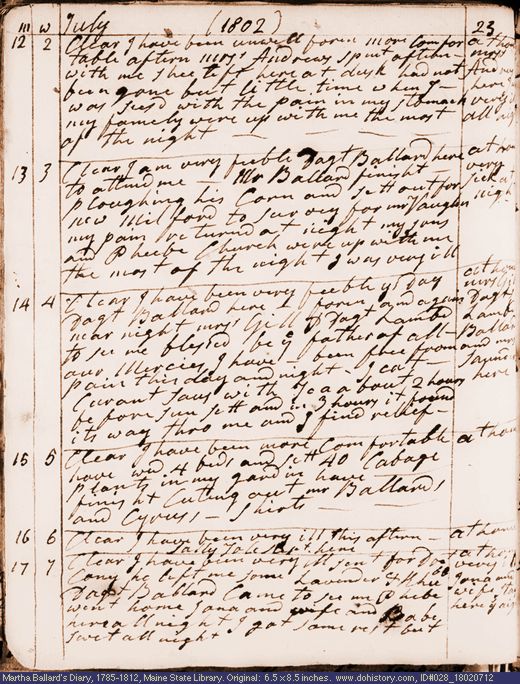 m w July (1802) 23
12 2 Clear I have been unwell foren more Comfor at ho
table aftern mrs Andrews spent aftern mrs
with me shee left here at dusk had not And
been gone but little time when I was here
was siesd with the pain in my stomach very
my famely were up with me the most all
of the night
13 3 Clear I am very feeble Dagt Ballard here at
to attend me - Mr Ballard finisht very
ploughing his Corn and sett out for sick at
new Milford to survey for mr Vaughn nigh
my pain returned at night my sons
and Phebe Church were up with me
the most of the night I was very ill
14 4 Clear I have been very feeble ys Day at hom
Dagt Ballard here foren and again mrs Gil
near night mrs Gill & Dagt Lambd Dagt
to see me blessed be ye father of all Lamb
our Mercies I have been free from Ballar
pain this day and night - I eat and mrs
Curant saus with Tea about 2 hours
before sun sett and in 3 hours it found here
its way thro me and I find relief -
15 5 Clear I have been more Comfortable at hom
have wed 4 beds and sett 40 Cabage
plants in my gardin have
finisht Cuting out mr Ballards
and Cyruss - shirts -
16 6 Clear I have been very ill this aftern - at home
Sally slept here
17 7 Clear I have been very ill sent for Doct at hom
Cony he left me some Lavender & very il
Dagt Ballard Came to see me Phebe Jona and
went home Jona and wife and Babe wife
here all night I got some rest but here
swet all night
Martha Ballard's Diary, 1785-1812, Maine State Library. Original: 6.5 x 8.5 inches. www.dohistory.com, ID#028_18020712